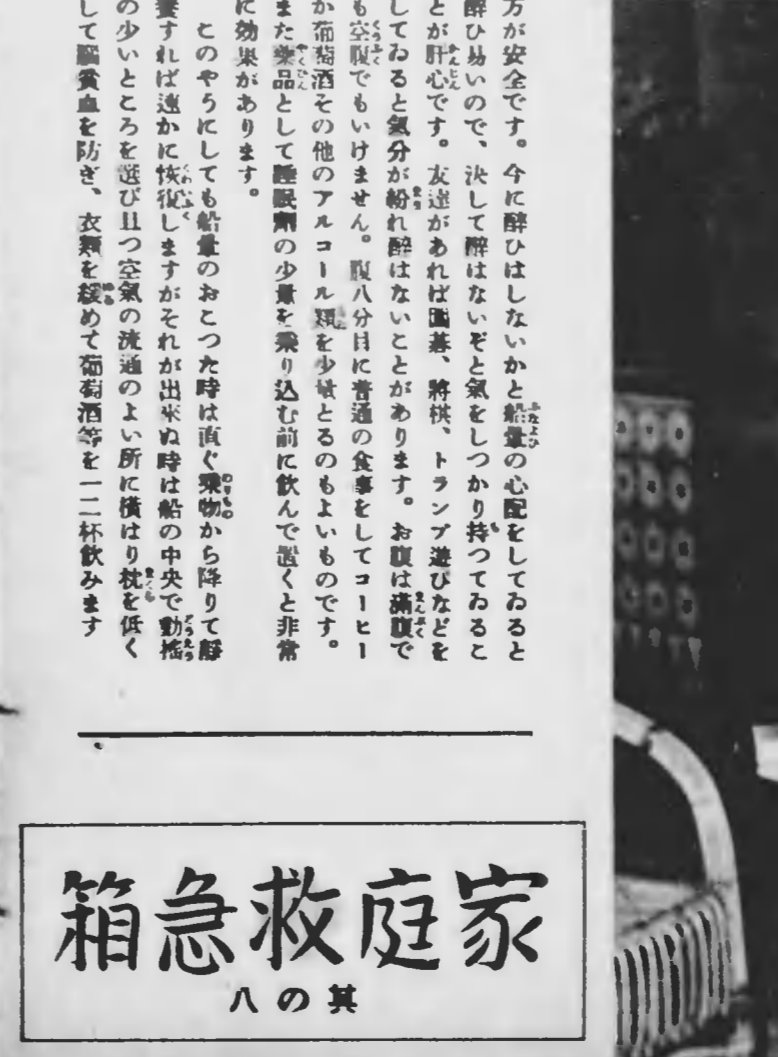 方が安全です。今に醉ひはしないかと船暈の心配をしてゐると
醉ひ易いので、決して醉はないぞと氣をしつかり持つてゐるこ
とが肝心です。友達があれば圍碁、將棋、トランプ遊びなどを
してゐると氣分が紛れ醉はないことがあります。お腹は滿腹で
も空腹でもいけません。腹八分目に普通の食事をしてコーヒー
か葡萄酒その他のアルコール類を少量とるのもよいものです。
また藥品として睡眠劑の少量を乘り込む前に飮んで置くと非常
に効果があります。
このやうにしても船暈のおこつた時は直ぐ乘物から降りて靜
養すれば速かに恢復しますがそれが出來ぬ時は船の中央で動搖
の少いところを選び且つ空氣の流通のよい所に橫はり枕を低く
して腦貧血を防ぎ、衣類を緩めて葡萄酒等を一二杯飮みます
箱急救庭家
八の其